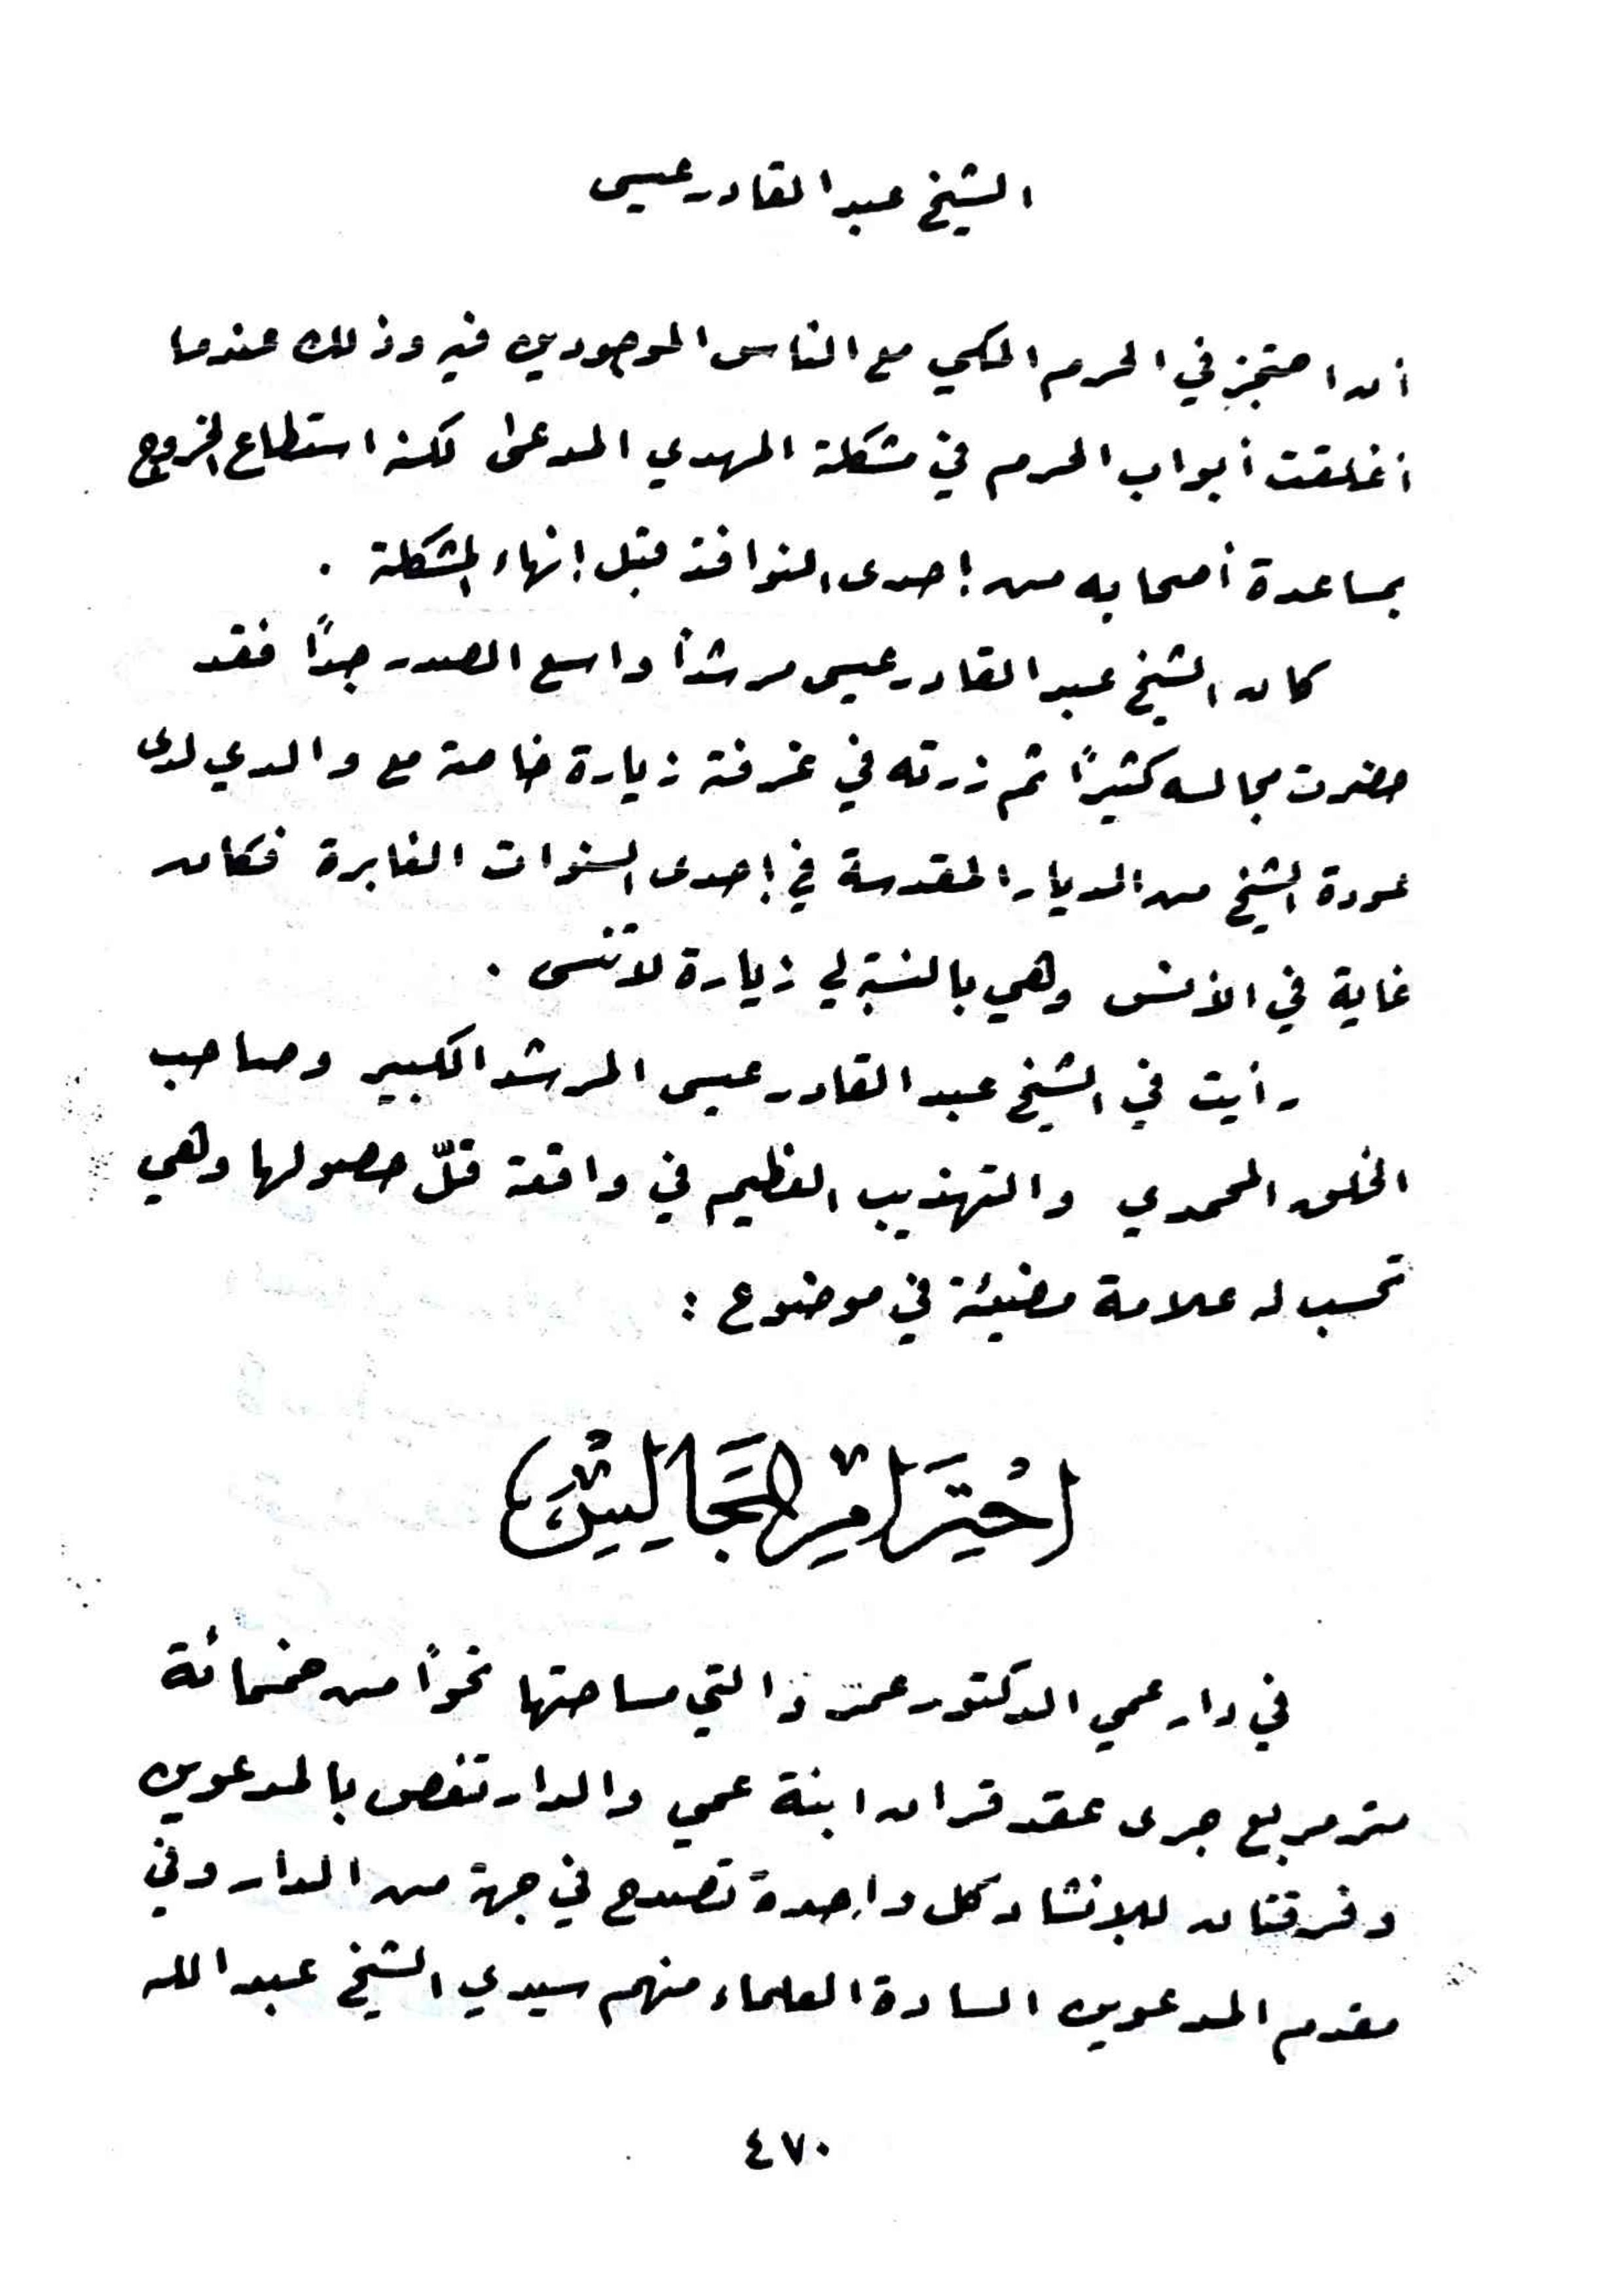 الشيخ عبد القادر عيسى
أن احتجز في الحرم المكي مع الناس الموجودين فيه وذلك عندما
أغلقت أبواب الحرم في مشكلة المهدي المدعى لكنه استطاع الخروج
بمساعدة أصحابه من إحدى النوافذ قبل إنهاء المشكلة .
كان الشيخ عبد القادر عيسى مرشداً واسع الصدر جداً فقد
حضرت مجالسه كثيراً ثم زرته في غرفته زيارة خاصة مع والدي لدى
عودة الشيخ من الديار المقدسة في إحدى السنوات الغابرة فكان
غاية في الأنس وهي بالنسبة لي زيارة لا تنسى .
رأيت في الشيخ عبد القادر عيسى المرشد الكبير وصاحب
الخلق المحمدي والتهذيب العظيم في واقعة قلّ حصولها وهي
تحسب له علامة مضيئة في موضوع :
احْتِرَامِ المَجَالِسِ
في دار عمي الدكتور عمر والتي مساحتها نحواً من خمسمائة
متر مربع جرى عقد قران ابنة عمي والدار تغص بالمدعوين
وفرقتان للإنشاد كل واحدة تصدح في جهة من الدار وفي
مقدم المدعوين السادة العلماء منهم سيدي الشيخ عبد الله
٤٧٠